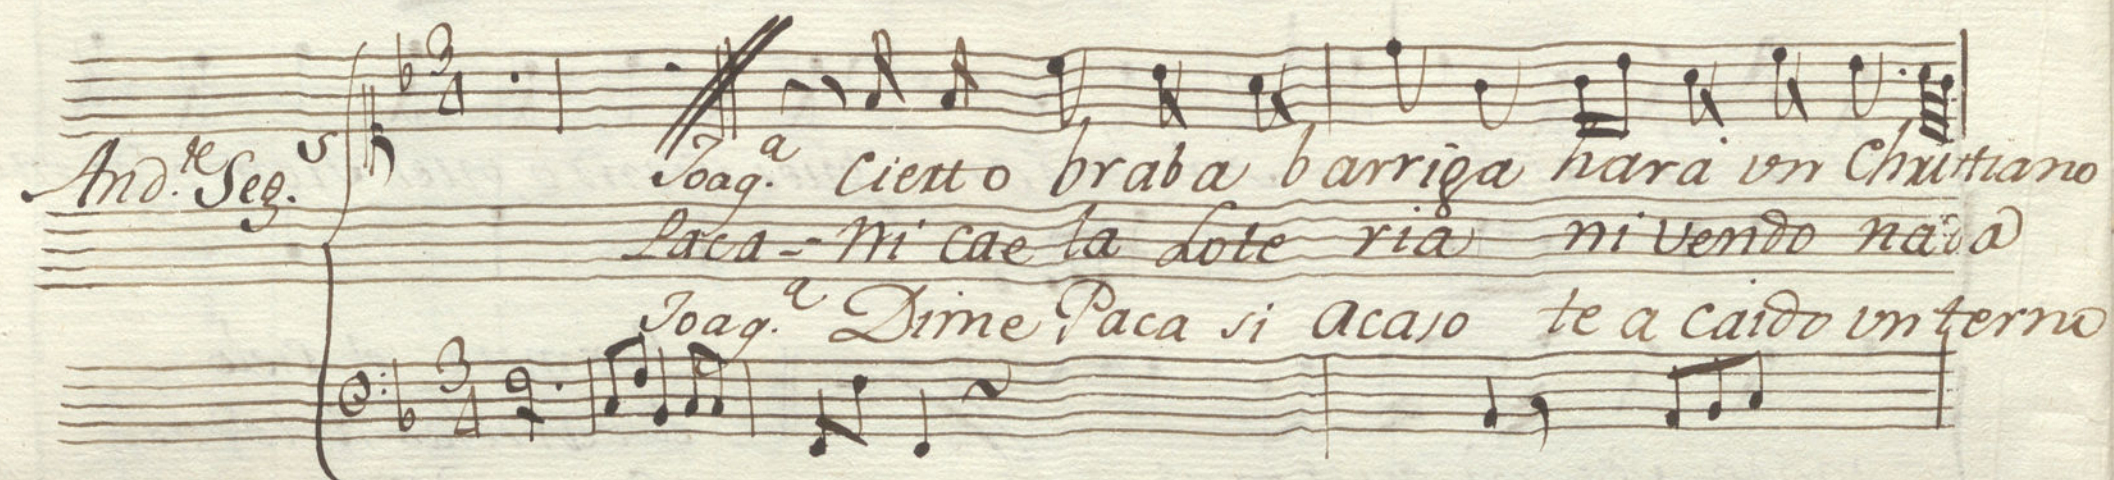 And.te Seg.s Joaq.a Cierto braba barriga hara un Christiano
Paca = Ni cae la Lote ria ni vendo nada
Joaq.a Dime Paca si acaso te a caido un terno